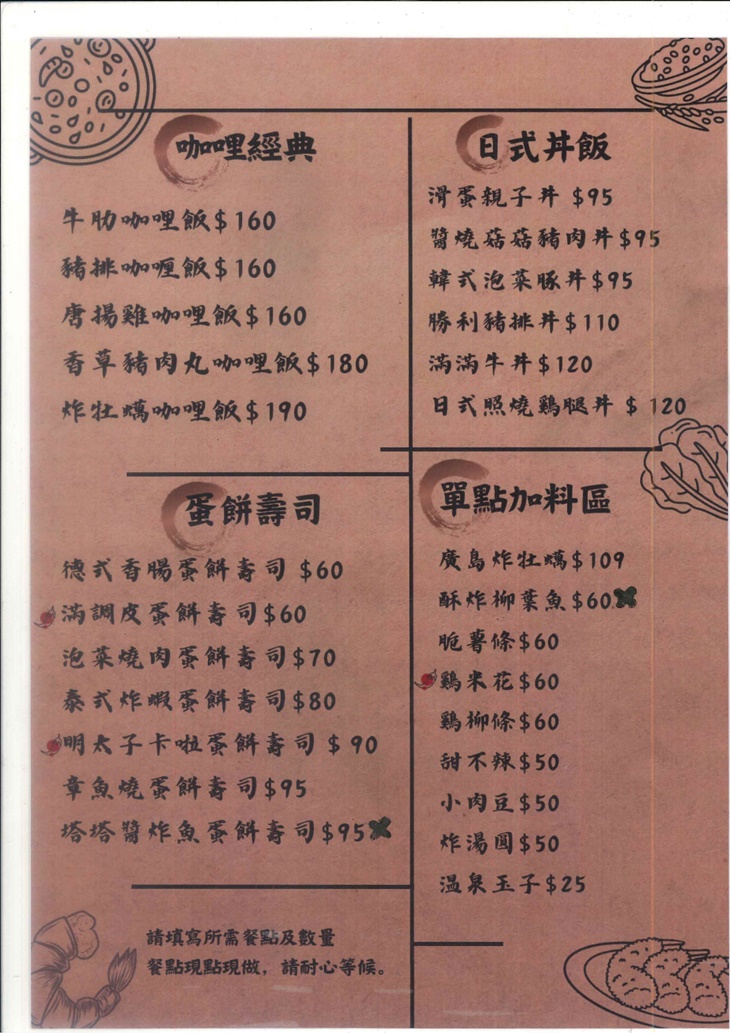 咖哩經典
牛肋咖哩飯$160
豬排咖喱飯$160
唐揚雞咖哩飯$160
香草豬肉丸咖哩飯$180
炸牡蠣咖哩飯$190
日式丼飯
滑蛋親子丼 $95
醬燒菇菇豬肉丼$95
韓式泡菜豚丼$95
勝利豬排丼$110
滿滿牛丼$120
日式照燒鷄腿丼 $ 120
蛋餅壽司
德式香腸蛋餅壽司 $60
滿調皮蛋餅壽司$60
泡菜燒肉蛋餅壽司$70
泰式炸蝦蛋餅壽司$80
明太子卡啦蛋餅壽司 $ 90
章魚燒蛋餅壽司$95
塔塔醬炸魚蛋餅壽司$95
單點加料區
廣島炸牡蠣$109
酥炸柳葉魚$60
脆薯條$60
鷄米花$60
鷄柳條$60
甜不辣$50
小肉豆$50
炸湯圓$50
溫泉玉子$25
請填寫所需餐點及數量
餐點現點現做，請耐心等候。